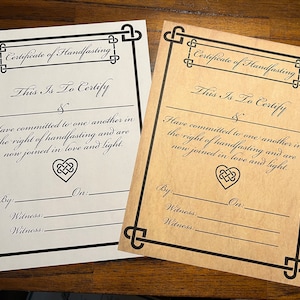 Certificate of Handfasting
This Is To Certify
&
Have committed to one another in
the right of handfasting and are
now joined in love and light.
By On
Witness:
Witness:
Certificate of Handfasting
This Is To Certify
&
Have committed to one another in
the right of handfasting and are
now joined in love and light.
By On
Witness:
Witness: